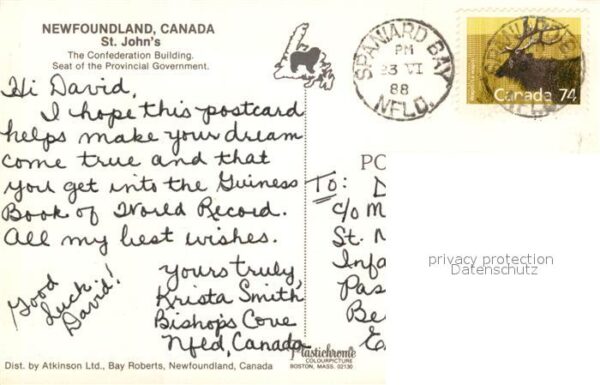 NEWFOUNDLAND, CANADA
St. John's
The Confederation Building.
Seat of the Provincial Government.
SPANIARD BAY
PM
23 VI
88
NFLD.
Canada 74
Hi David,
I hope this postcard
helps make your dream
come true and that
you get into the Guiness
Book of World Record.
All my best wishes.
Good
Luck
David!
Yours truly,
Krista Smith
Bishops Cove
Nfld, Canada
PO
To: D
c/o M
St. M
Infa
Pas
Be
E
privacy protection
Datenschutz
Plastichrome
COLOURPICTURE
BOSTON, MASS. 02130
Dist. by Atkinson Ltd., Bay Roberts, Newfoundland, Canada